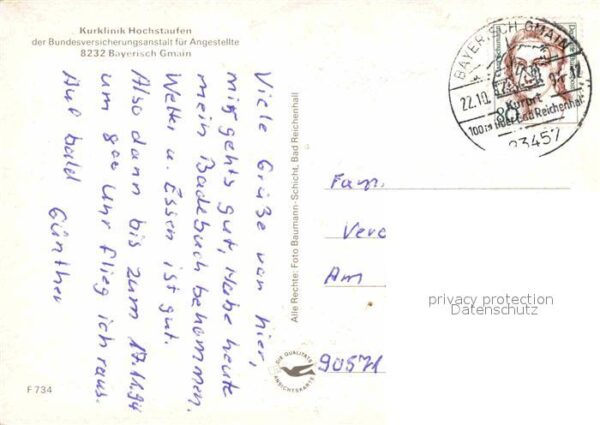 Kurklinik Hochstaufen
der Bundesversicherungsanstalt für Angestellte
8232 Bayerisch Gmain
Viele Grüße von hier,
mir gehts gut, Habe heute
mein Badebuch bekommen.
Wetter u. Essen ist gut.
Also dann bis zum 17.11.94
um 8°° Uhr flieg ich raus.
Auf bald
Günther
F 734
Alle Rechte: Foto Baumann-Schicht, Bad Reichenhall
DIE QUALITÄTS
ANSICHTSKARTE
BAYERISCH GMAIN
22.10. 94-12
Kurort
100 m über Bad Reichenhall
83457
80
Fam.
Vero
Am
90571
privacy protection
Datenschutz